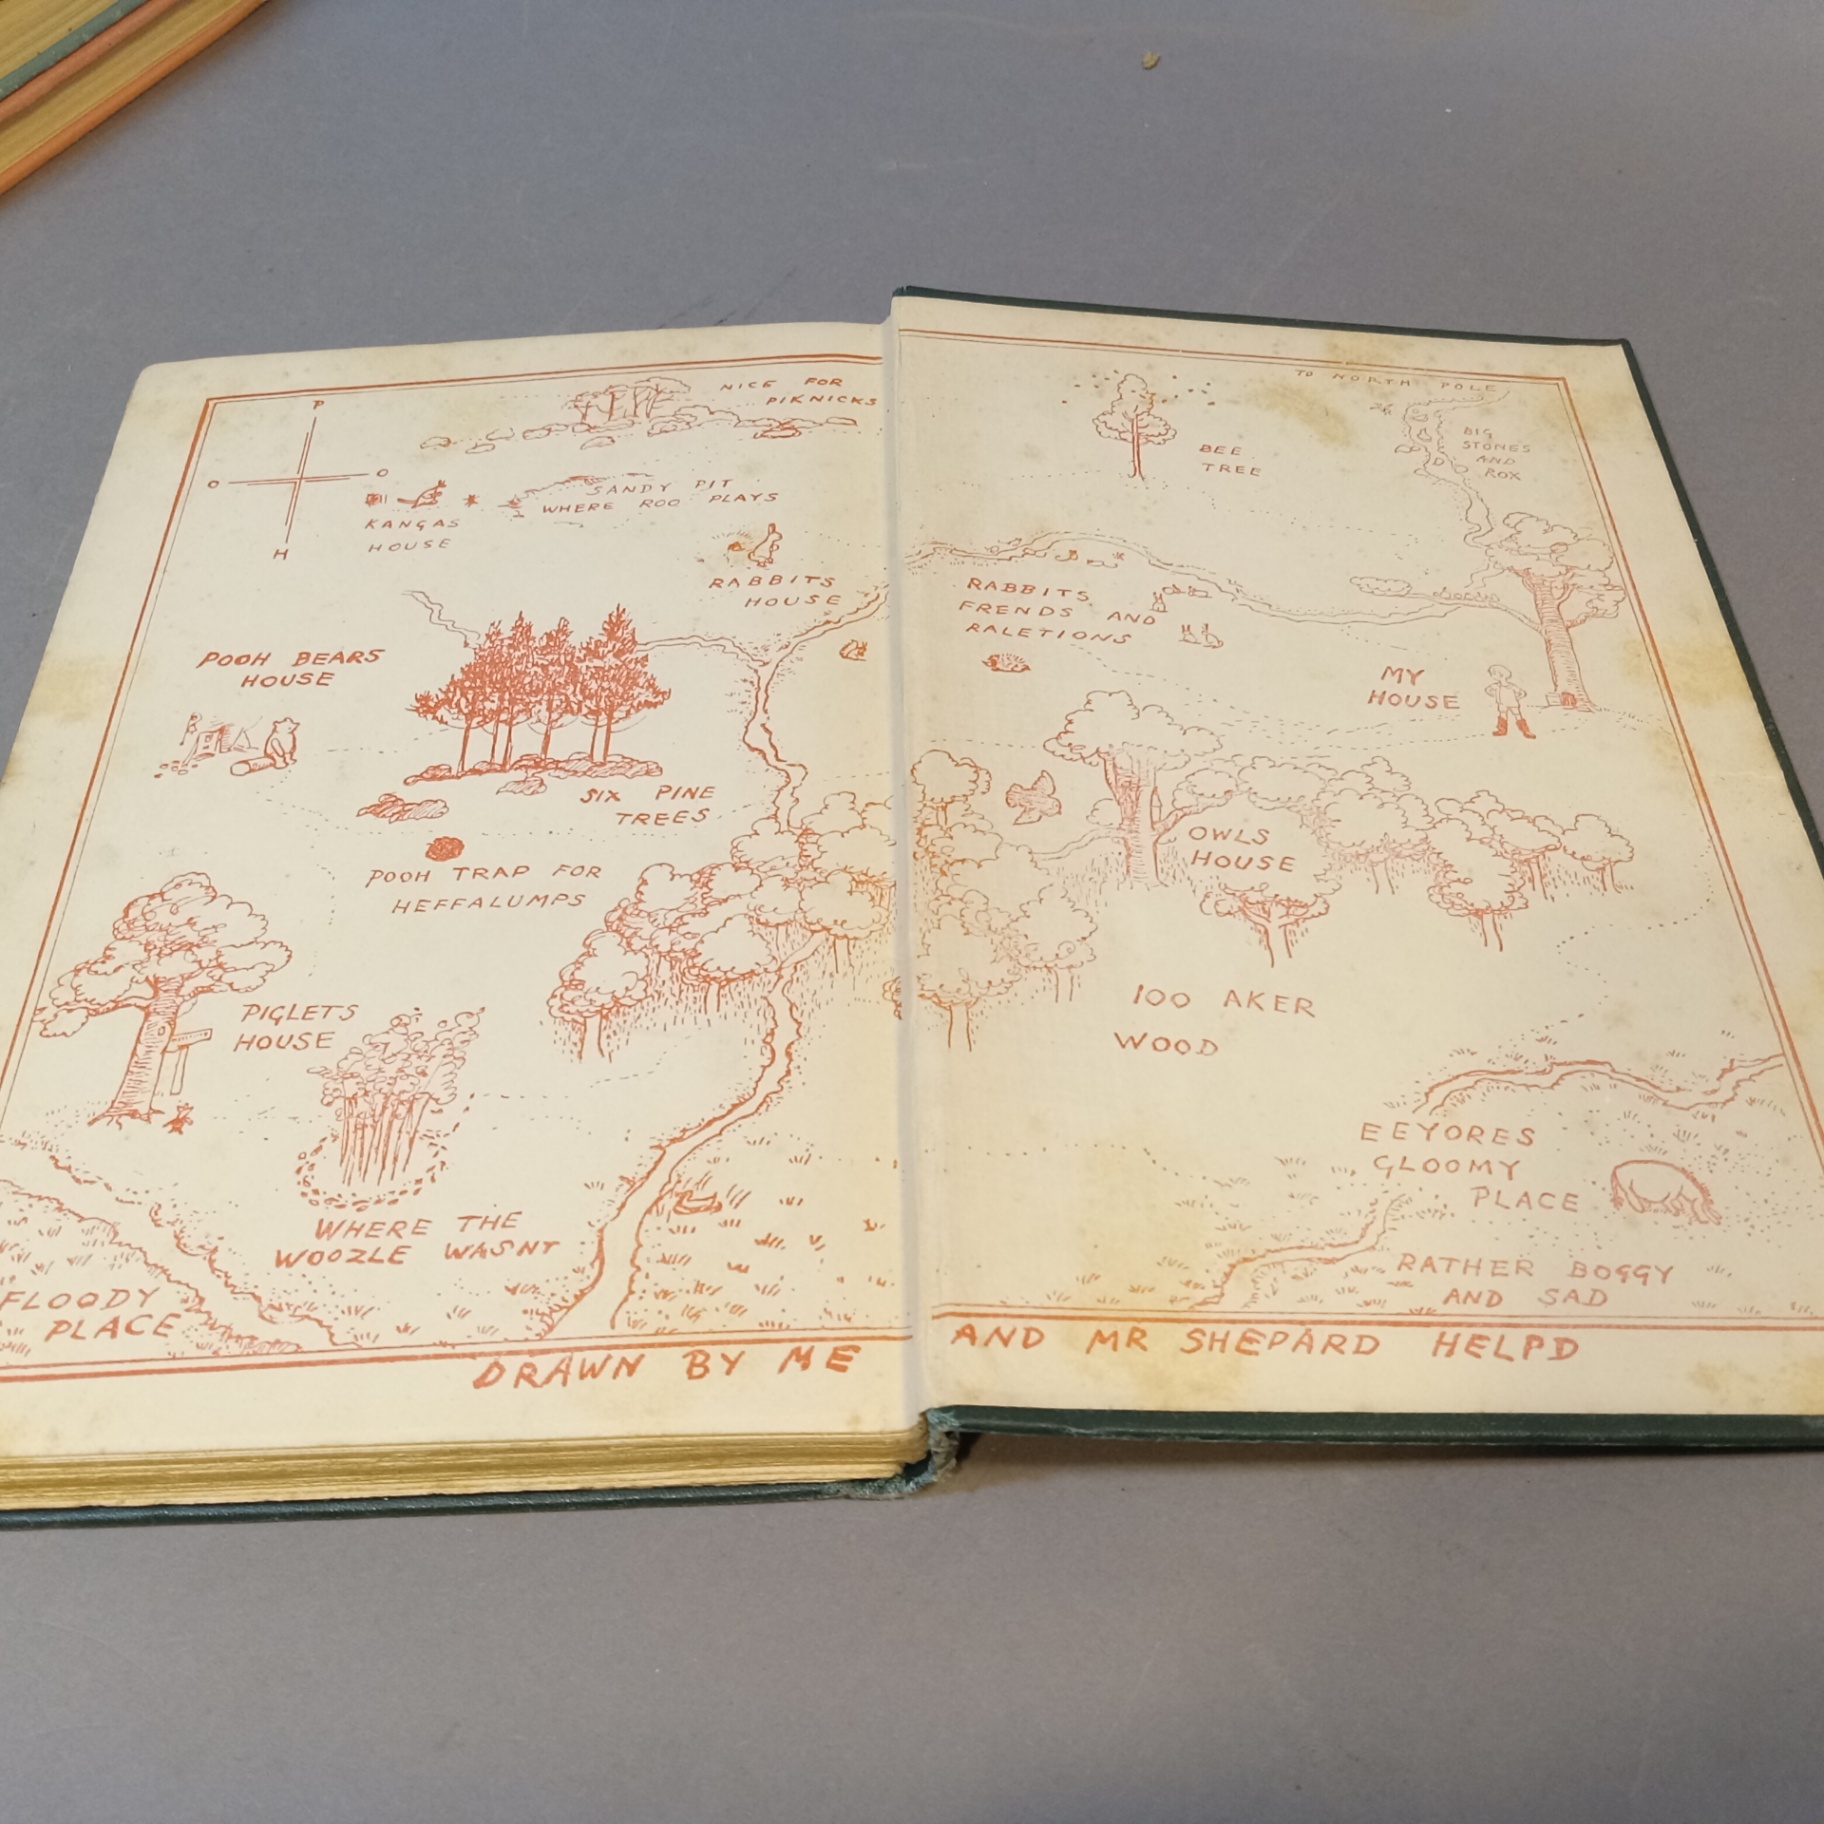 P
O
O
H
NICE FOR
PIKNICKS
KANGAS
HOUSE
SANDY PIT
WHERE ROO PLAYS
RABBITS
HOUSE
POOH BEARS
HOUSE
SIX PINE
TREES
POOH TRAP FOR
HEFFALUMPS
PIGLETS
HOUSE
WHERE THE
WOOZLE WASNT
FLOODY
PLACE
DRAWN BY ME
TO NORTH POLE
BEE
TREE
BIG
STONES
AND
ROX
RABBITS
FRENDS AND
RALETIONS
MY
HOUSE
OWLS
HOUSE
100 AKER
WOOD
EEYORES
GLOOMY
PLACE
RATHER BOGGY
AND SAD
AND MR SHEPARD HELPD